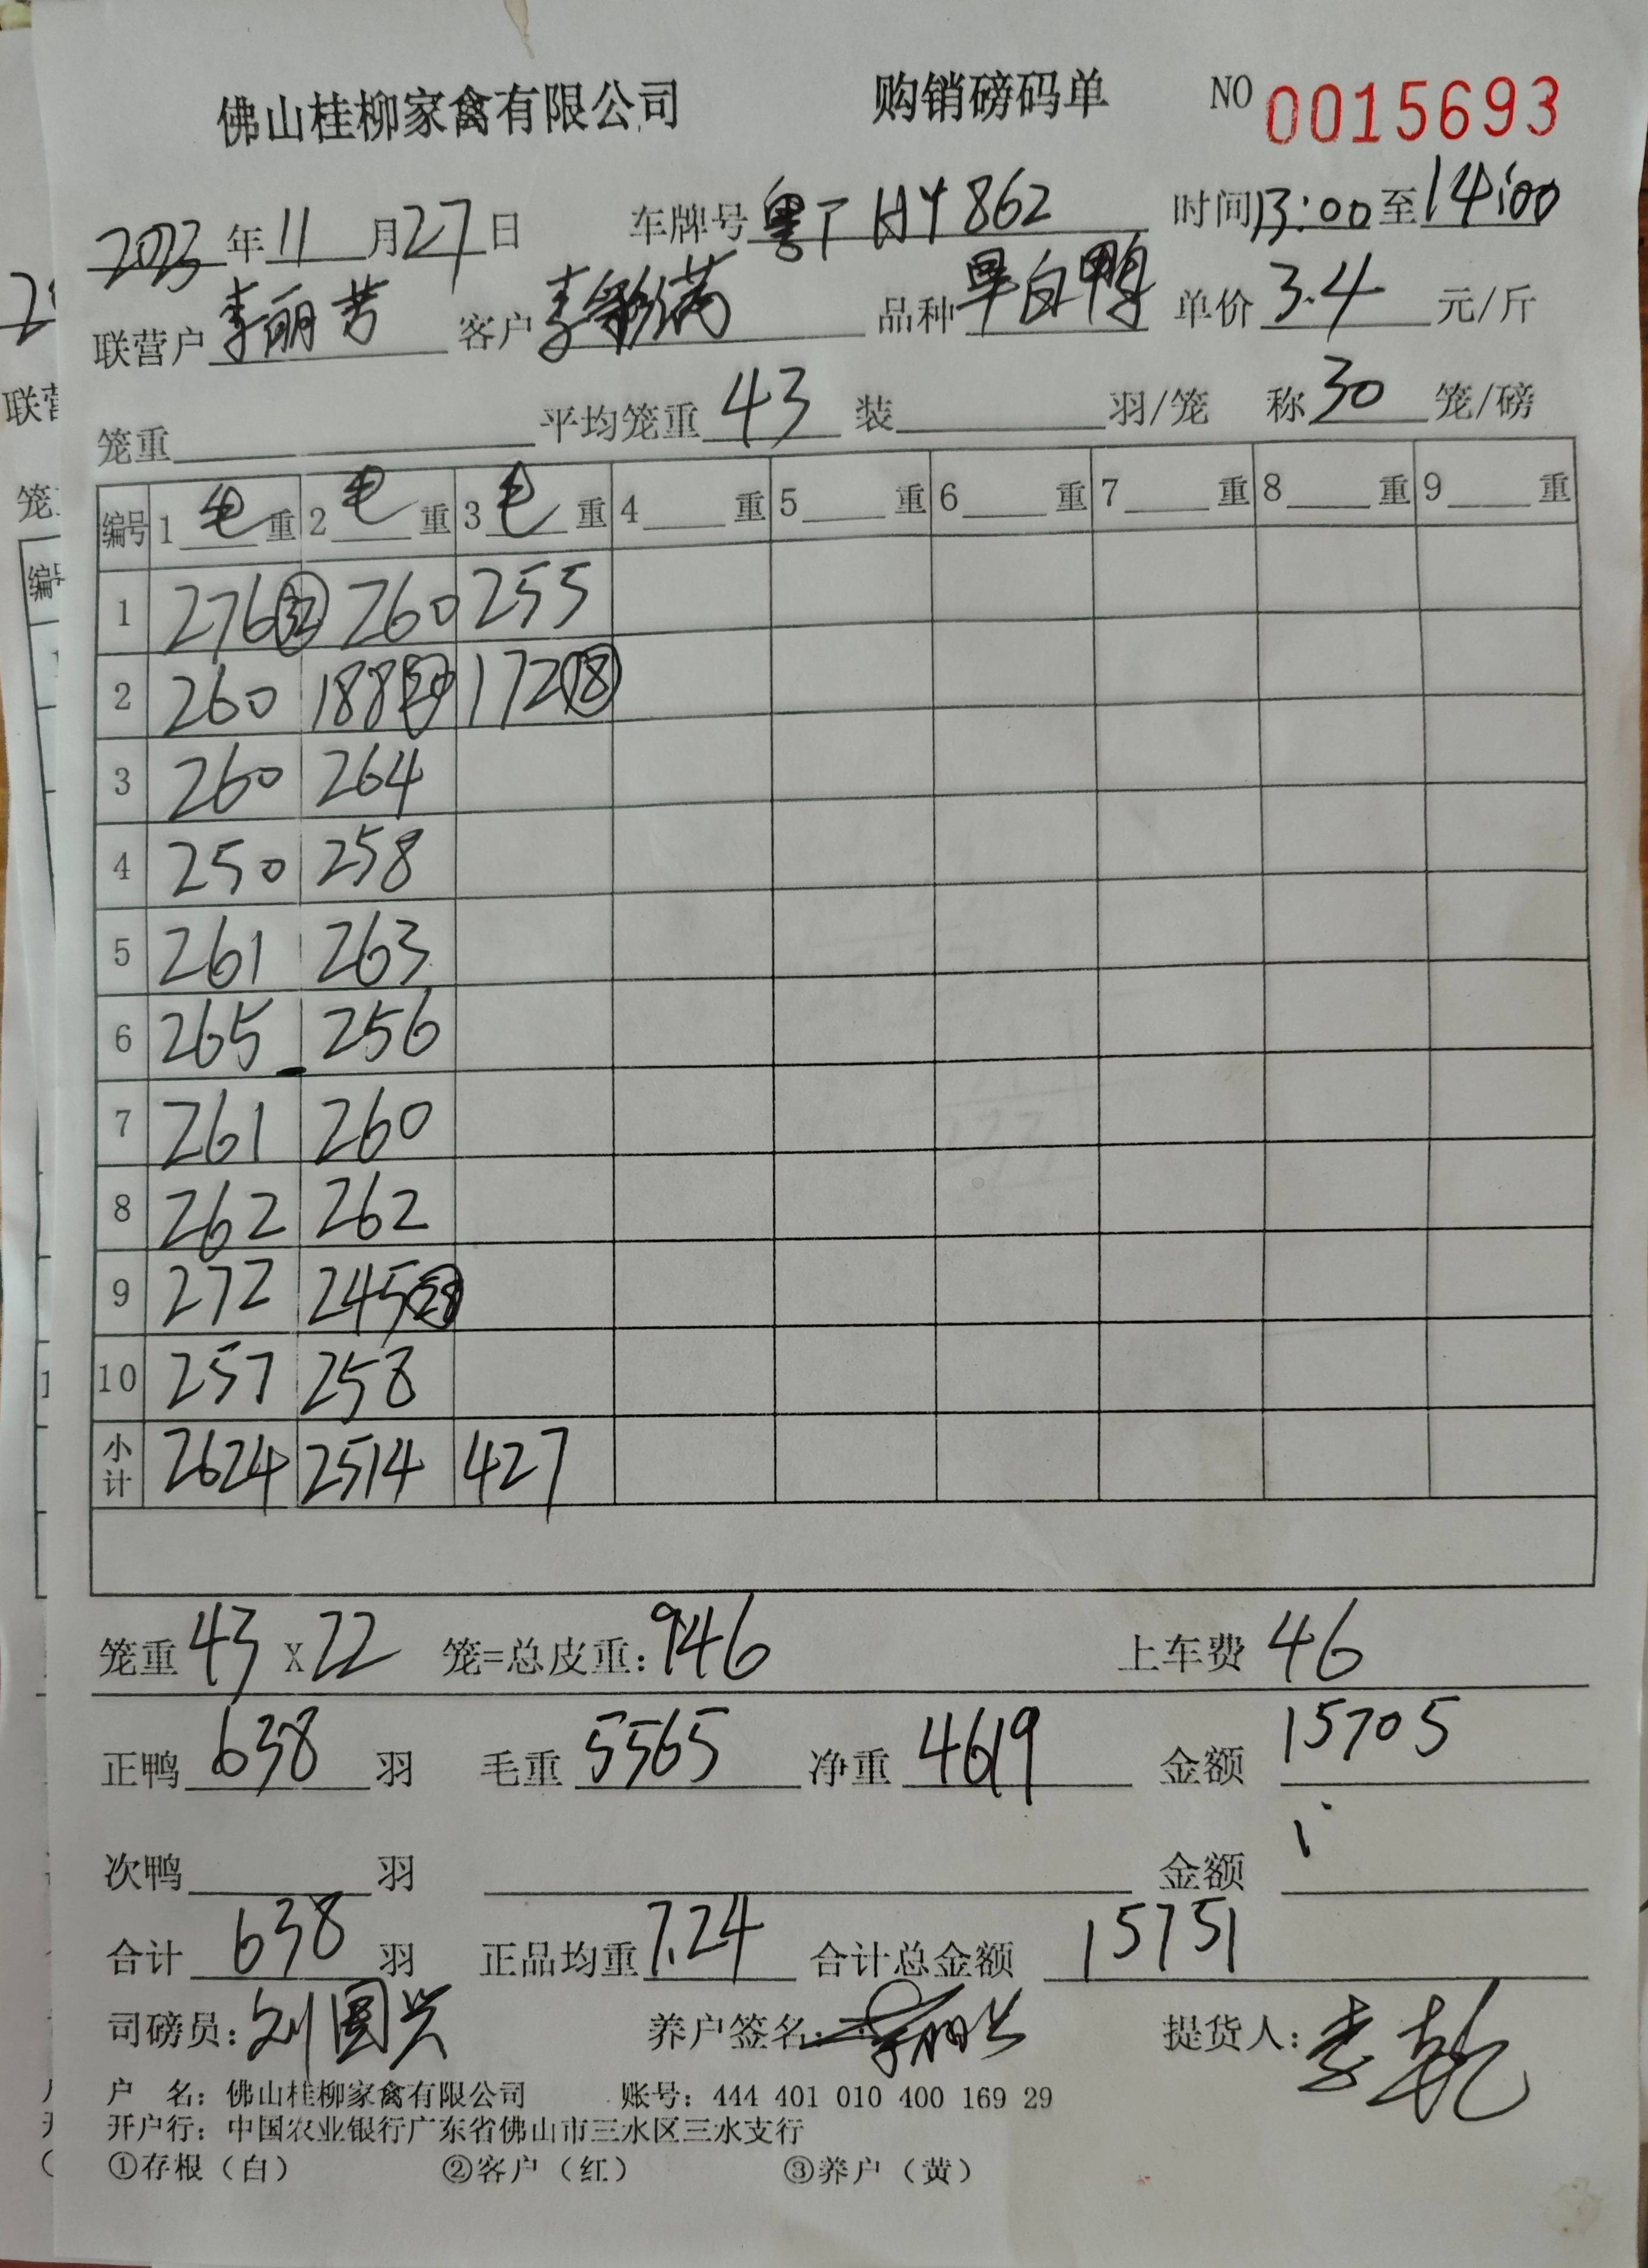 佛山桂柳家禽有限公司 购销磅码单 NO 0015693
2023年11月27日 车牌号粤THY862 时间13:00至14:00
联营户李丽芳 客户李彩满 品种旱白鸭 单价3.4元/斤
笼重 平均笼重43 装 羽/笼 称30笼/磅
编号 1毛重 2毛重 3毛重 4 重 5 重 6 重 7 重 8 重 9 重
1 276㉜ 260 255
2 260 188⑳ 172⑱
3 260 264
4 250 258
5 261 263
6 265 256
7 261 260
8 262 262
9 272 245㉘
10 257 258
小计 2624 2514 427
笼重43X22笼=总皮重:946 上车费46
正鸭638羽 毛重5565 净重4619 金额15705
次鸭 羽 金额
合计638羽 正品均重7.24 合计总金额15751
司磅员:刘国兴 养户签名: 提货人:李乾
户 名:佛山桂柳家禽有限公司 账号:444 401 010 400 169 29
开户行:中国农业银行广东省佛山市三水区三水支行
①存根(白) ②客户(红) ③养户(黄)